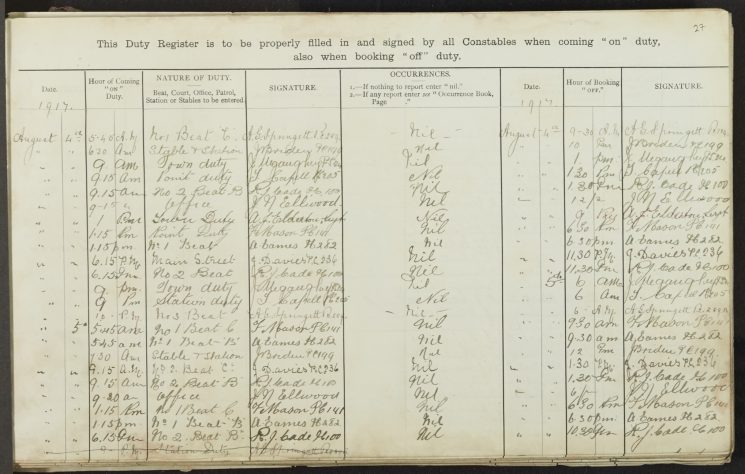 27
This Duty Register is to be properly filled in and signed by all Constables when coming "on" duty,
also when booking "off" duty.
Date. Hour of Coming "ON" Duty. NATURE OF DUTY. Beat, Court, Office, Patrol, Station or Stables to be entered. SIGNATURE. OCCURRENCES. 1.—If nothing to report enter "nil." 2.—If any report enter see "Occurrence Book, Page ." Date. Hour of Booking "OFF." SIGNATURE.
1917. 1917
August 4th 5-40 A.M. No 1 Beat C. A E Springett Nil August 4th 9-30 A E Springett
" " 6 20 Am Stable & Station J Briden PC 199 Nil 10 J Briden PC 199
" " 9 am Town duty Nil 1 pm
" " 9 15 am Point duty T Capell PC 205 Nil 1.30 Pm T Capell PC 205
" " 9.15 am No 2 Beat B R.J. Cade PC 100 Nil 1 30 Pm R.J. Cade PC 100
" " 9-15 " Office J N Ellwood Nil J N Ellwood
" " 1 Pm Town Duty Nil 9
" " 1.15 Pm Point Duty F Mason PC 141 Nil 6.30 Pm F Mason PC 141
" " 1.15 pm No 1 Beat A Eames PC 282 Nil 6.30 pm A Eames PC 282
" " 6.15 P.M. Main Street J. Davies P.C. 236 Nil 11.30 P.M. J. Davies P.C. 236
" " 6.15 Pm No 2 Beat R.J. Cade PC 100 Nil 11.30 Pm R.J. Cade PC 100
" " 9 pm Town duty Nil 5th 6 am
" " 9 Pm Station duty T Capell PC 205 Nil 6 Am T Capell PC 205
" " 10 P.M. No 3 Beat A.E. Springett Nil 6 A.M. A.E. Springett
" 5th 5.45 am No 1 Beat C F Mason PC 141 Nil 9.30 am F Mason PC 141
" " 5.45 am No 1 Beat B A Eames PC 282 Nil 9.30 am A Eames PC 282
" " 7 30 Am Stable & Station J Briden PC 199 Nil 12 J Briden PC 199
" " 9.15 A.M. No 2 Beat C J. Davies P.C. 236 Nil 1.30 P.M. J. Davies P.C. 236
" " 9.15 am No 2 Beat B R.J. Cade PC 100 Nil 1.30 Pm R.J. Cade PC 100
" " 9-20 a Office J N Ellwood Nil J N Ellwood
" " 1.15 Pm No 1 Beat C F Mason PC 141 Nil 6.30 Pm F Mason PC 141
" " 1.15 pm No 1 Beat B A Eames PC 282 Nil 6.30 pm A Eames PC 282
" " 6.15 Pm No 2 Beat B R.J. Cade PC 100 Nil 10.30 Pm R.J. Cade PC 100
Station Duty